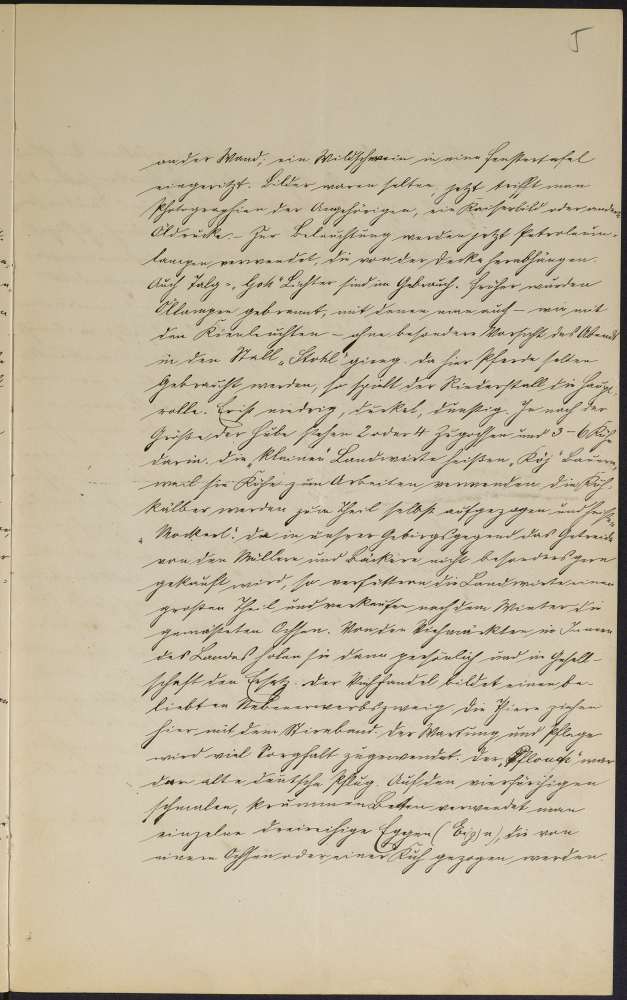 5
an der Wand; ein Wildschwein in eine Fenstertafel
eingeritzt. Bilder waren selten, jetzt trifft man
Photographien der Angehörigen, ein Kaiserbild oder andere
Öldrucke. – Zur Beleuchtung werden jetzt Petroleum-
lampen verwendet, die von der Decke herabhängen.
Auch Talg-, Lichter sind im Gebrauch. Früher wurden
Öllampen gebrannt, mit denen man auch – wie mit
den Kienleuchten – ohne besondere Vorsicht des Abends
in den Stall „Stohl" gieng. Da hier Pferde selten
gebraucht werden, so spielt der Rinderstall die Haupt-
rolle. Er ist niedrig, dunkel, dunstig. Je nach der
Größe der Hube stehen 2 oder 4 Zugochsen und 3–6 Kühe
darin. Die „kleinen" Landwirte heißen „Köj" Bauern,
weil sie Kühe zum Arbeiten verwenden, die Kuh-
kälber werden zum Theil selbst aufgezogen und heißen
„Mockerl". Da in unsrer Gebirgsgegend das Getreide
von den Müllern und Bäckern nicht besonders gern
gekauft wird, so verfüttern die Landwirte einen
großen Theil und verkaufen nach dem Winter die
gemästeten Ochsen. Von den Viehmärkten im Innern
des Landes holen sie dann persönlich und in Gesell-
schaft den Ersatz. Der Viehhandel bildet einen be-
liebten Nebenerwerbszweig. Die Thiere ziehen
hier mit dem Stirnband. Der Wartung und Pflege
wird viel Sorgfalt zugewendet. Der „ war
der alte deutsche Pflug. Auf den vierfurchigen
schmalen, krummen Beeten verwendet man
einzelne dreireihige Eggen (, die von
einem Ochsen oder einer Kuh gezogen werden.